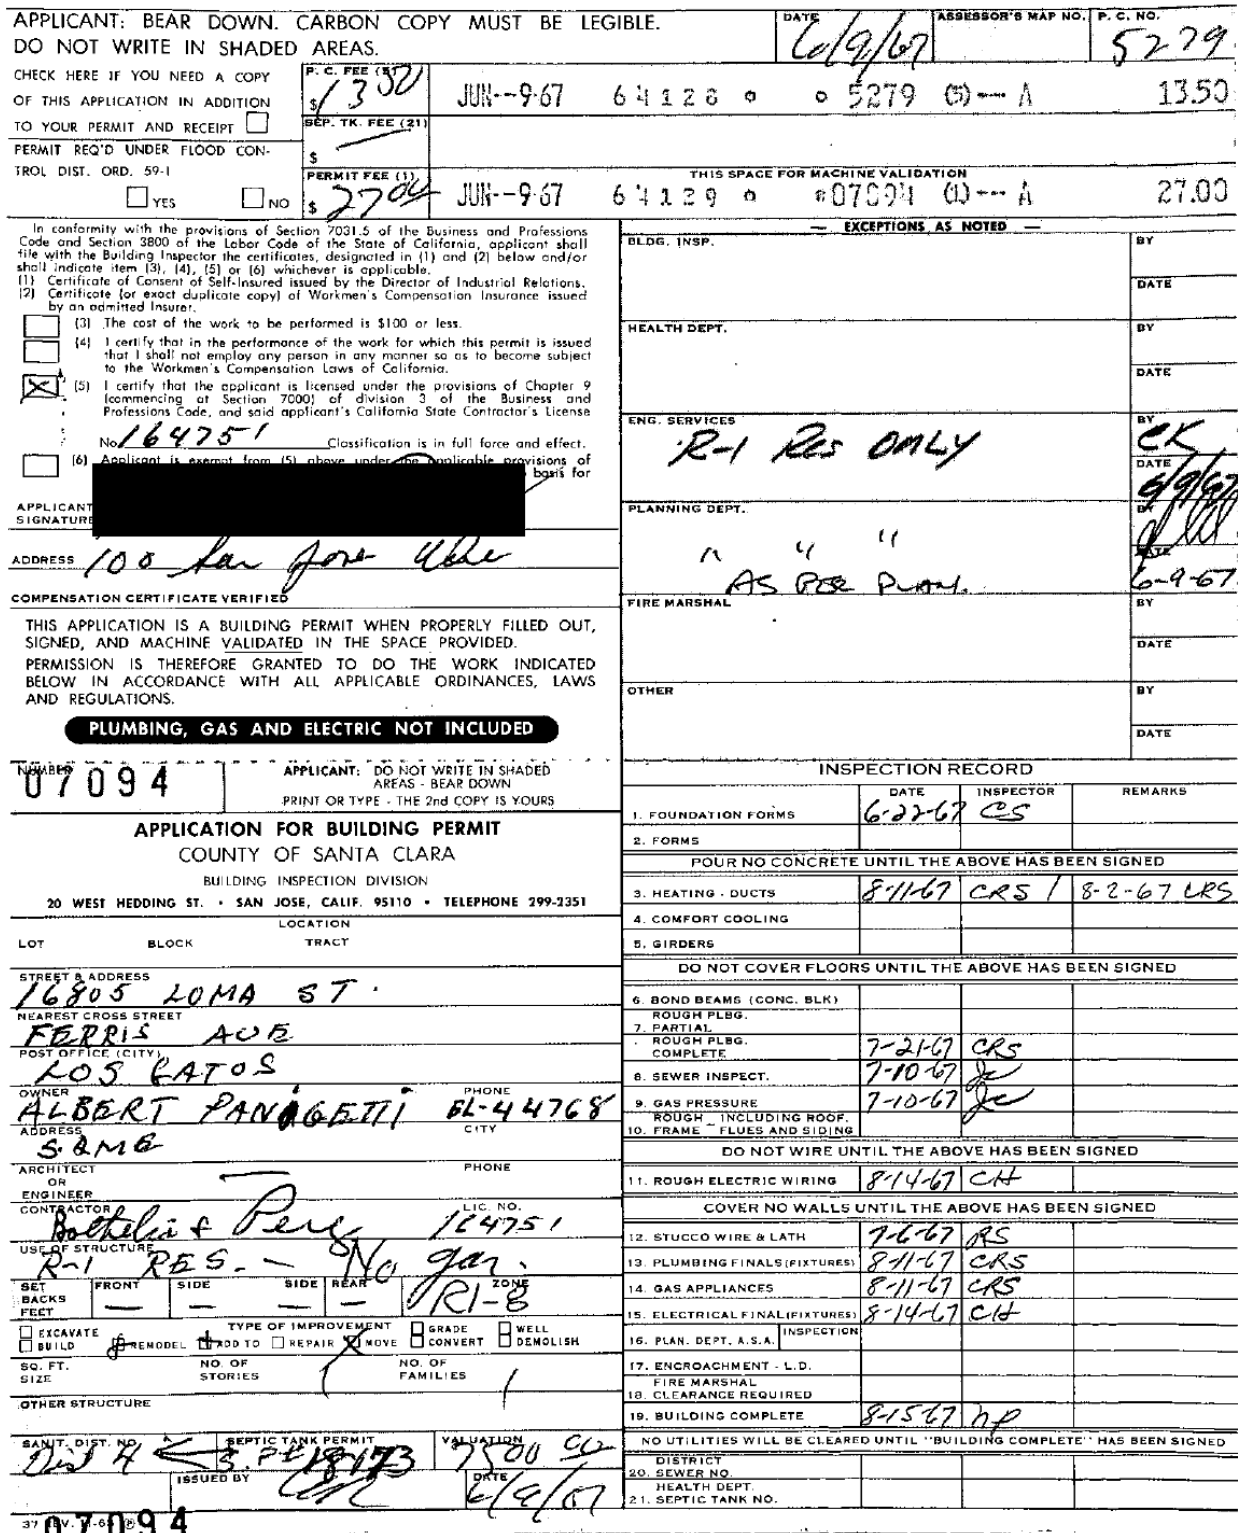 APPLICANT: BEAR DOWN. CARBON COPY MUST BE LEGIBLE.
DO NOT WRITE IN SHADED AREAS.
DATE 6/9/67
ASSESSOR'S MAP NO.
P. C. NO. 5279
CHECK HERE IF YOU NEED A COPY
OF THIS APPLICATION IN ADDITION
TO YOUR PERMIT AND RECEIPT
P. C. FEE (5)
$ 13 50
JUN--9-67 64128 5279 (5)--- A 13.50
SEP. TK. FEE (21)
$
PERMIT REQ'D UNDER FLOOD CON-
TROL DIST. ORD. 59-1
YES NO
PERMIT FEE (1)
$ 27 00
THIS SPACE FOR MACHINE VALIDATION
JUN--9-67 64129 07094 (1)--- A 27.00
In conformity with the provisions of Section 7031.5 of the Business and Professions
Code and Section 3800 of the Labor Code of the State of California, applicant shall
file with the Building Inspector the certificates, designated in (1) and (2) below and/or
shall indicate item (3), (4), (5) or (6) whichever is applicable.
(1) Certificate of Consent of Self-Insured issued by the Director of Industrial Relations.
(2) Certificate (or exact duplicate copy) of Workmen's Compensation Insurance issued
by an admitted Insurer.
(3) The cost of the work to be performed is $100 or less.
(4) I certify that in the performance of the work for which this permit is issued
that I shall not employ any person in any manner so as to become subject
to the Workmen's Compensation Laws of California.
(5) I certify that the applicant is licensed under the provisions of Chapter 9
(commencing at Section 7000) of division 3 of the Business and
Professions Code, and said applicant's California State Contractor's License
No. 164751 Classification is in full force and effect.
(6) Applicant is exempt from (5) above under the applicable provisions of
basis for
APPLICANT
SIGNATURE
ADDRESS 100 San Jose
COMPENSATION CERTIFICATE VERIFIED
THIS APPLICATION IS A BUILDING PERMIT WHEN PROPERLY FILLED OUT,
SIGNED, AND MACHINE VALIDATED IN THE SPACE PROVIDED.
PERMISSION IS THEREFORE GRANTED TO DO THE WORK INDICATED
BELOW IN ACCORDANCE WITH ALL APPLICABLE ORDINANCES, LAWS
AND REGULATIONS.
PLUMBING, GAS AND ELECTRIC NOT INCLUDED
NUMBER
07094
APPLICANT: DO NOT WRITE IN SHADED
AREAS - BEAR DOWN
PRINT OR TYPE - THE 2nd COPY IS YOURS
APPLICATION FOR BUILDING PERMIT
COUNTY OF SANTA CLARA
BUILDING INSPECTION DIVISION
20 WEST HEDDING ST. • SAN JOSE, CALIF. 95110 • TELEPHONE 299-2351
LOCATION
LOT BLOCK TRACT
STREET & ADDRESS
16805 LOMA ST.
NEAREST CROSS STREET
FERRIS AVE
POST OFFICE (CITY)
LOS GATOS
OWNER PHONE
ALBERT PANIGETTI EL-44768
ADDRESS CITY
SAME
ARCHITECT
OR
ENGINEER
PHONE
CONTRACTOR LIC. NO.
164751
USE OF STRUCTURE
R-1 RES. - No gar.
SET
BACKS
FEET
FRONT SIDE SIDE REAR ZONE
R1-8
TYPE OF IMPROVEMENT
EXCAVATE
BUILD REMODEL ADD TO REPAIR MOVE GRADE
CONVERT WELL
DEMOLISH
SQ. FT.
SIZE
NO. OF
STORIES
1
NO. OF
FAMILIES
1
OTHER STRUCTURE
SANIT. DIST. NO.
Dist 4
SEPTIC TANK PERMIT
18173
VALUATION
7500 00
ISSUED BY
DATE
6/9/67
07094
EXCEPTIONS AS NOTED
BLDG. INSP. BY
DATE
HEALTH DEPT. BY
DATE
ENG. SERVICES BY
R-1 RES ONLY CK
DATE
6/9/67
PLANNING DEPT. BY
" " "
AS PER PLAN.
DATE
6-9-67
FIRE MARSHAL BY
DATE
OTHER BY
DATE
INSPECTION RECORD
DATE INSPECTOR REMARKS
1. FOUNDATION FORMS 6-22-67 CS
2. FORMS
POUR NO CONCRETE UNTIL THE ABOVE HAS BEEN SIGNED
3. HEATING - DUCTS 8-11-67 CRS / 8-2-67 CRS
4. COMFORT COOLING
5. GIRDERS
DO NOT COVER FLOORS UNTIL THE ABOVE HAS BEEN SIGNED
6. BOND BEAMS (CONC. BLK)
ROUGH PLBG.
7. PARTIAL
ROUGH PLBG.
COMPLETE 7-21-67 CRS
8. SEWER INSPECT. 7-10-67 Jc
9. GAS PRESSURE 7-10-67 Jc
ROUGH - INCLUDING ROOF.
10. FRAME - FLUES AND SIDING
DO NOT WIRE UNTIL THE ABOVE HAS BEEN SIGNED
11. ROUGH ELECTRIC WIRING 8-14-67 CH
COVER NO WALLS UNTIL THE ABOVE HAS BEEN SIGNED
12. STUCCO WIRE & LATH 7-6-67 RS
13. PLUMBING FINALS (FIXTURES) 8-11-67 CRS
14. GAS APPLIANCES 8-11-67 CRS
15. ELECTRICAL FINAL (FIXTURES) 8-14-67 CH
16. PLAN. DEPT. A.S.A. INSPECTION
17. ENCROACHMENT - L.D.
FIRE MARSHAL
18. CLEARANCE REQUIRED
19. BUILDING COMPLETE 8-15-67 np
NO UTILITIES WILL BE CLEARED UNTIL "BUILDING COMPLETE" HAS BEEN SIGNED
DISTRICT
20. SEWER NO.
HEALTH DEPT.
21. SEPTIC TANK NO.